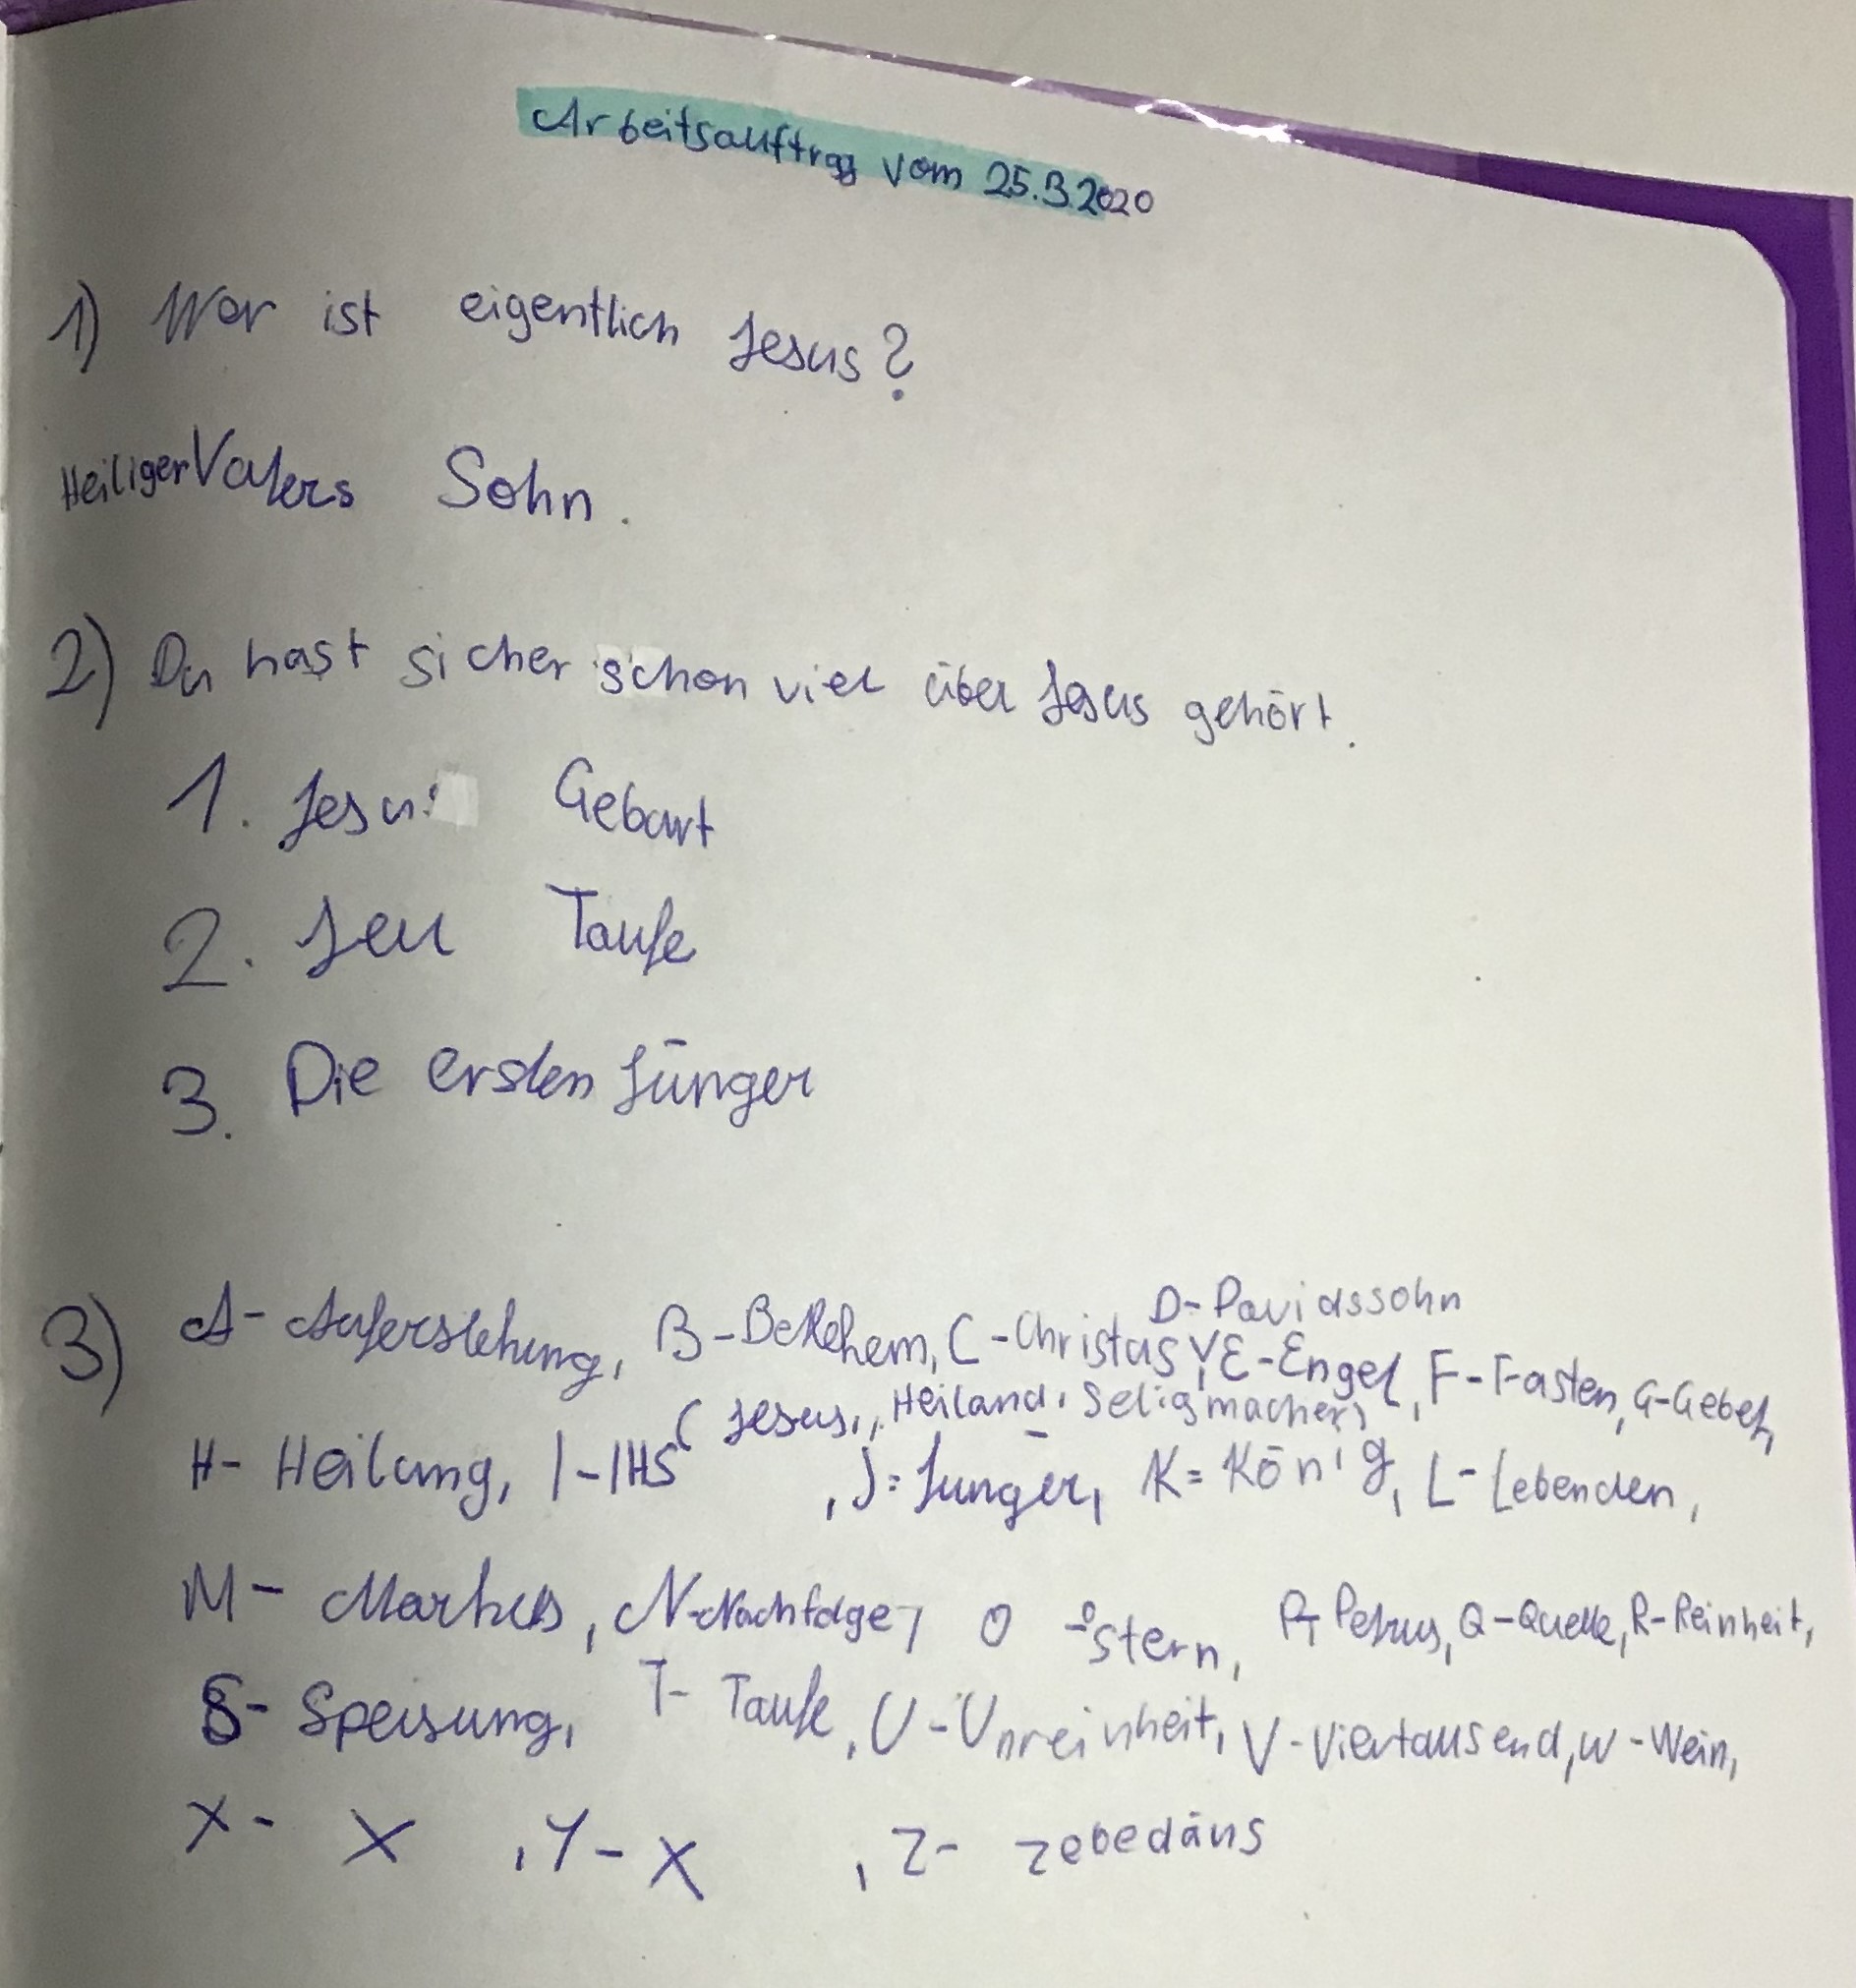 Arbeitsauftrag vom 25.3.2020
1) Wer ist eigentlich Jesus?
Heiliger Vaters Sohn.
2) Du hast sicher schon viel über Jesus gehört.
1. Jesu Geburt
2. Jeu Taufe
3. Die ersten Jünger
D- Davidssohn
3) A- Auferstehung, B-Betlehem, C-Christus, E-Engel, F-Fasten, G-Gebet,
(Jesus, Heiland, Seligmacher)
H- Heilung, I-IHS, J=Jünger, K=König, L-Lebenden,
M- Markus, N-Nachfolge, O -Ostern, P-Petrus, Q-Quelle, R-Reinheit,
S- Speisung, T- Taufe, U-Unreinheit, V-Viertausend, W-Wein,
X- X, Y- X, Z- Zebedäus